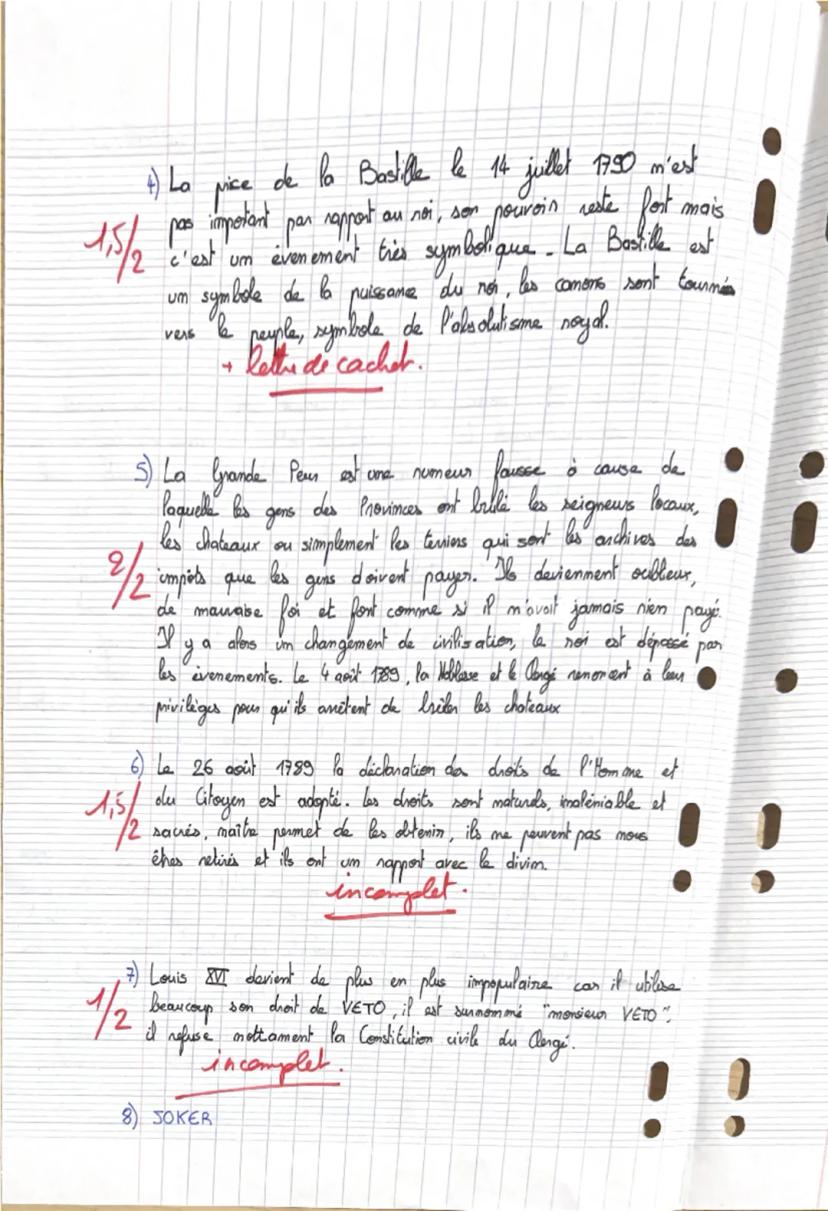 4) La pice de la Bastille le 14 juillet 1790 n'est
pas important par rapport au roi, son pouvoir reste fort mais
1,5/2
c'est un évenement très symbolique. La Bastille est
un symbole de la puissance du roi, les canons sont tournés
vers le peuple, symbole de l'absolutisme royal.
+ lettre de cachet.
5) La Grande Peur est une rumeur fausse à cause de
laquelle les gens des Provinces ont brûlé les seigneurs locaux,
les chateaux ou simplement les terriers qui sont les archives des
2/2
impôts que les gens doivent payer. Ils deviennent oublieux,
de mauvaise foi et font comme si il n'avoit jamais rien payé.
Il y a alors un changement de civilisation, le roi est dépassé par
les évenements. Le 4 août 1789, la Noblesse et le Clergé renoncent à leur
privilèges pour qu'ils arrêtent de brûler les chateaux
6) Le 26 août 1789 la déclaration des droits de l'Homme et
1,5/2
du Citoyen est adopté. Les droits sont naturels, inaléniable et
sacrés, naître permet de les obtenir, ils ne peuvent pas nous
êtres retirés et ils ont un rapport avec le divin.
incomplet.
7) Louis XVI devient de plus en plus impopulaire car il utilise
1/2
beaucoup son droit de VETO, il est surnommé "monsieur VETO".
il refuse nottament la Constitution civile du Clergé.
incomplet.
8) JOKER